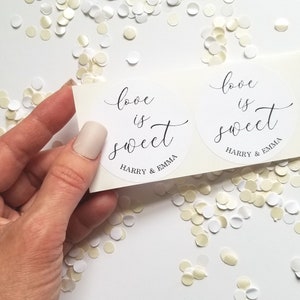 love
is
sweet
HARRY & EMMA
love
is
sweet
HARRY & EMMA